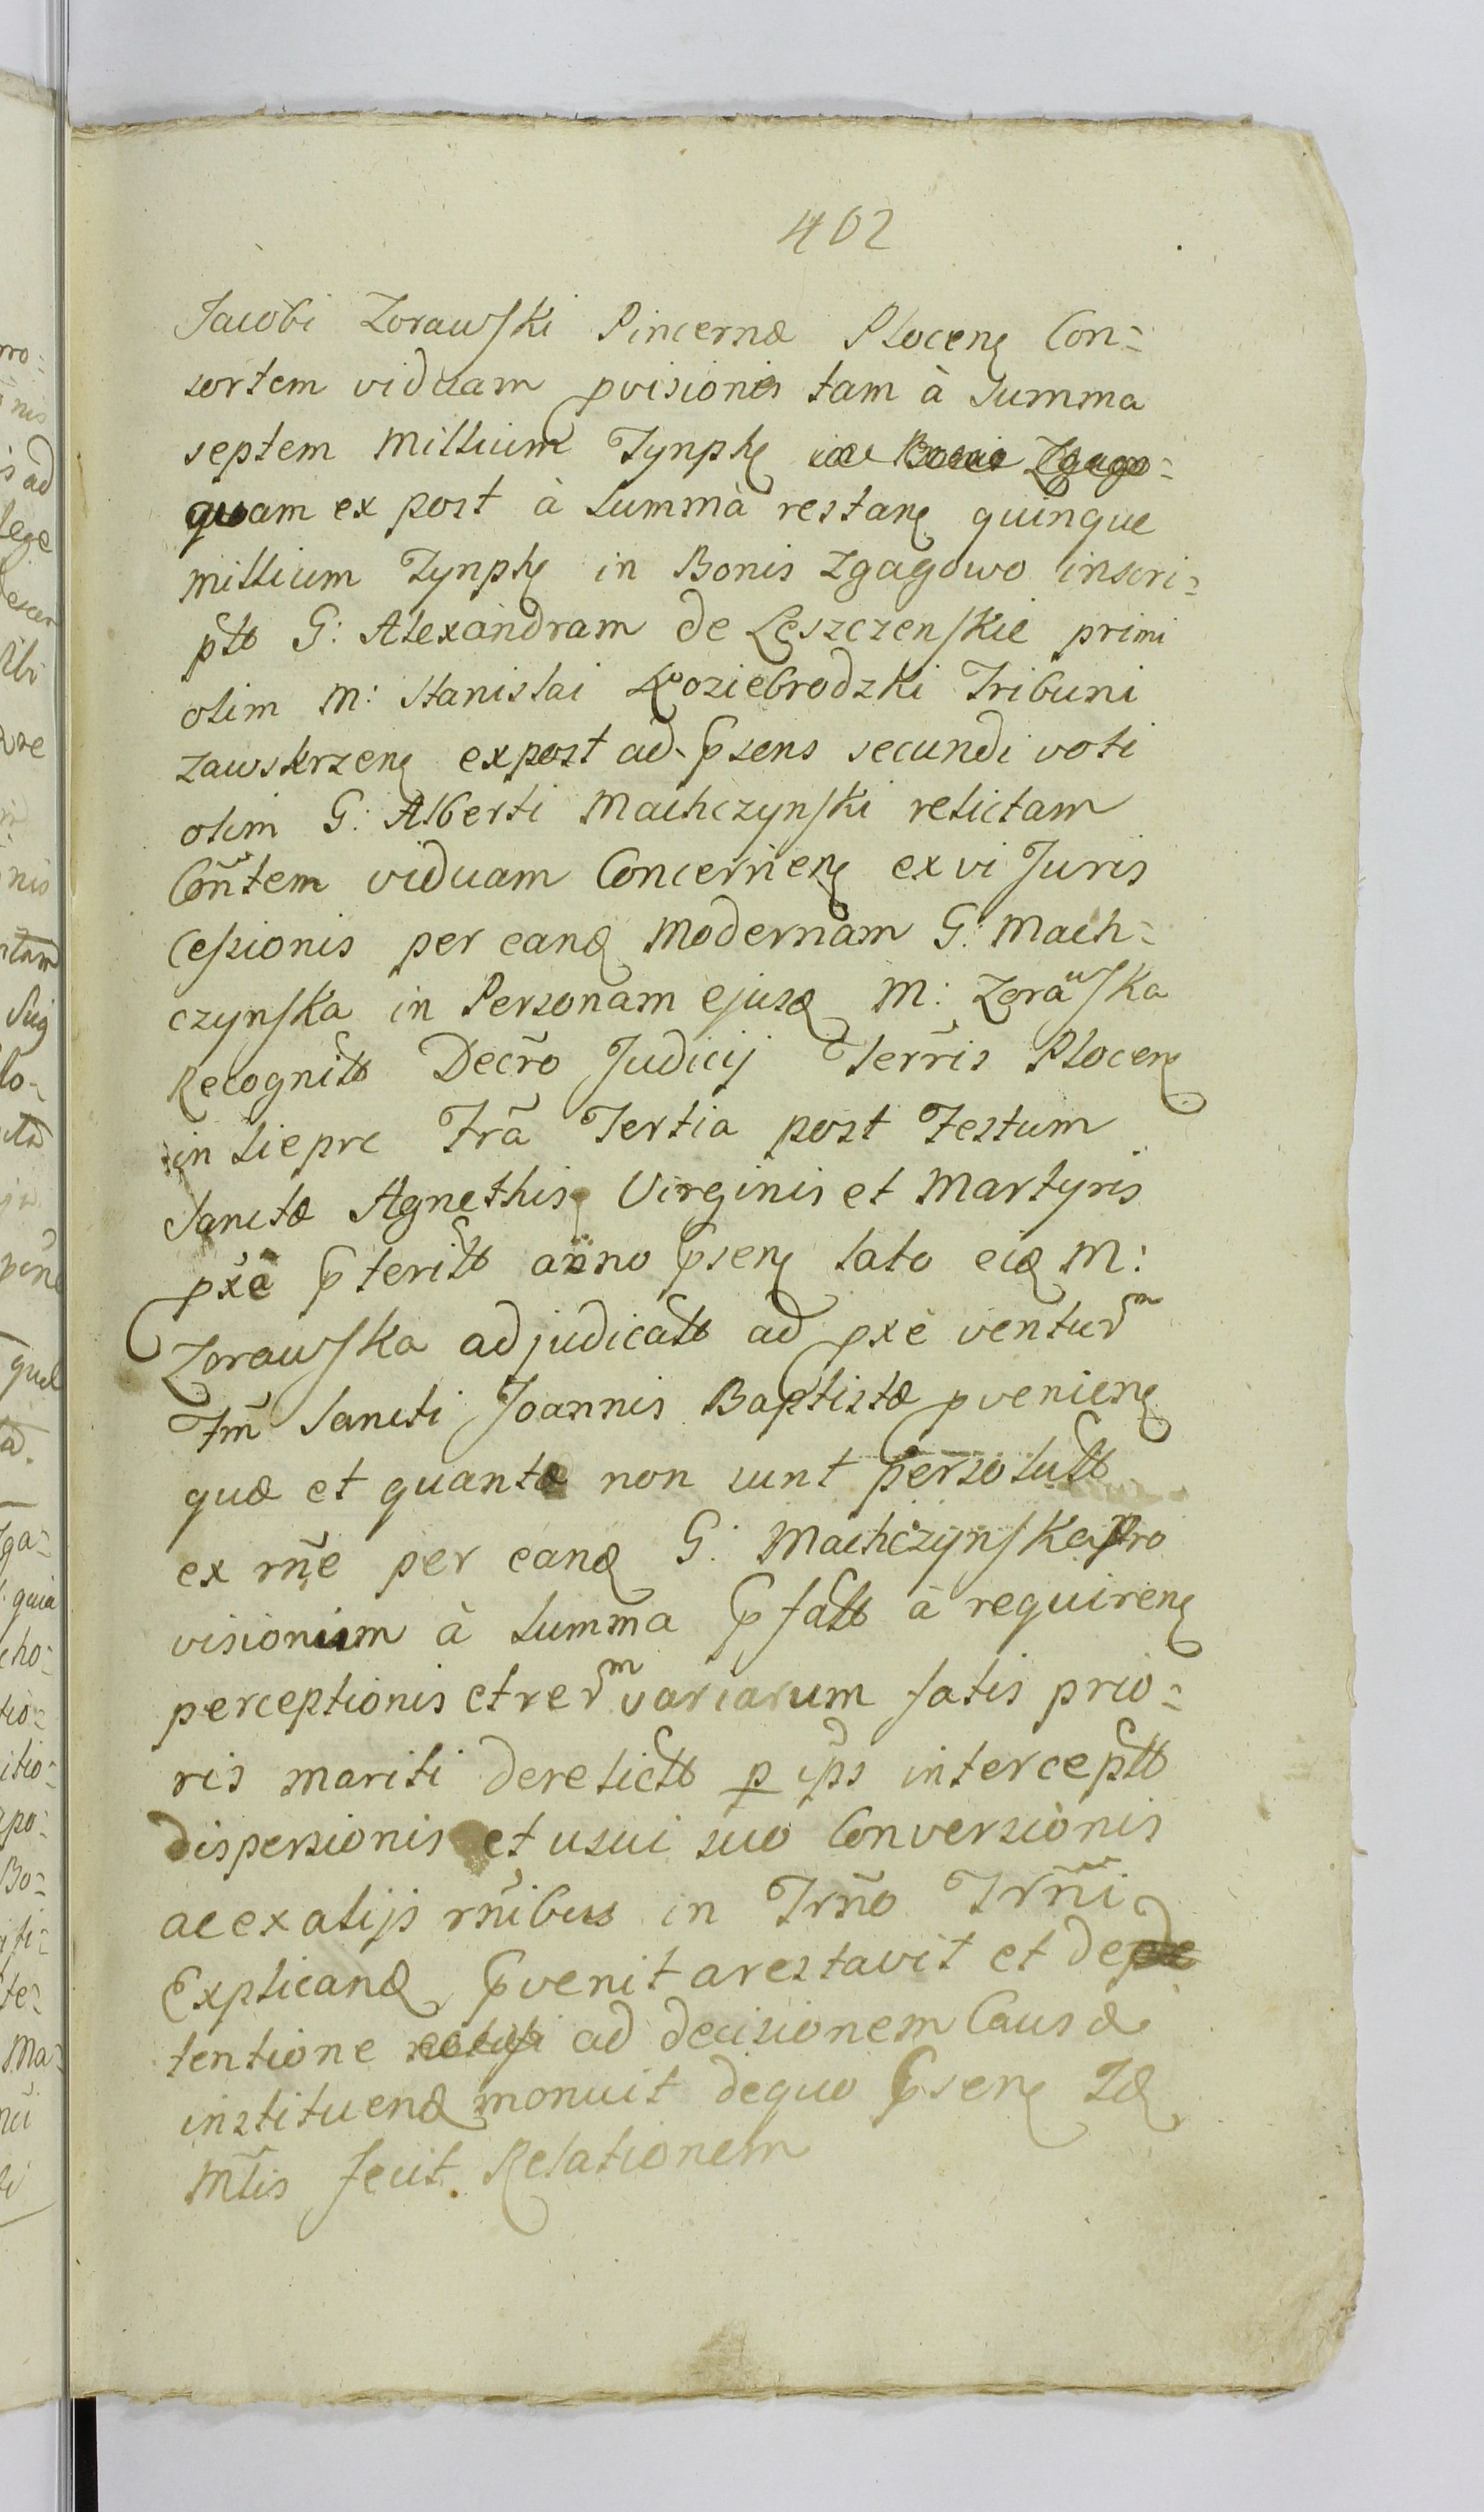 402
Jacobi Zorawski Pincernæ Ploceng Con=
sortem viduam pvisiones tam à Summa
septem Millium Tynph in Bonis Zgago=
quam ex post à Summa restang quinque
millium Tynph in Bonis Zgagowo inscri=
ptto G: Alexandram de Leszczenskie primi
olim M: Stanislai Koziebrodzki Tribuni
Zawskrzeng expost ad psens secundi voti
olim G: Alberti Machczynski relictam
Con̄tem viduam Concerneng ex vi Juris
Cessionis per eand Modernam G: Mach=
czynska in Personam ejusd M: Zorawska
Recognitto Decr̃o Judicij Terr̃is Ploceng
in Siepre Fr̃a Tertia post Festum
Sanctæ Agnethis Virginis et Martyris
pxe pteritto anno pseng lato eid M:
Zorawska adjudicatto ad pxe venturm
Fm̃ Sancti Joannis Baptistæ pvenieng
quæ et quantæ non sunt persolutto
ex rñe per eand G: Machczynska Pro
visionum à Summa pfatto à requireng
perceptionis et rerm variarum fatis prio=
ris mariti derelictto p ips interceptto
dispersionis et usui suo Conversionis
ac ex alijs rñibus in Trño Trñi
Explicand pvenit arestavit et de
tentione ad decisionem Causæ
instituend monuit dequo pseng Id
Ml̃is fecit Relationem